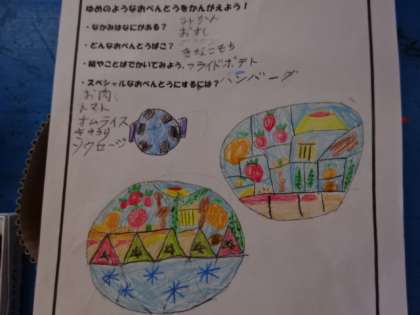 ゆめのようなおべんとうをかんがえよう！
・なかみはなにがある？ みかん
おすし
・どんなおべんとうばこ？ きなこもち
・絵やことばでかいてみよう。フライドポテト
・スペシャルなおべんとうにするには？ハンバーグ
お肉
トマト
オムライス
きゅうり
ソウセージ